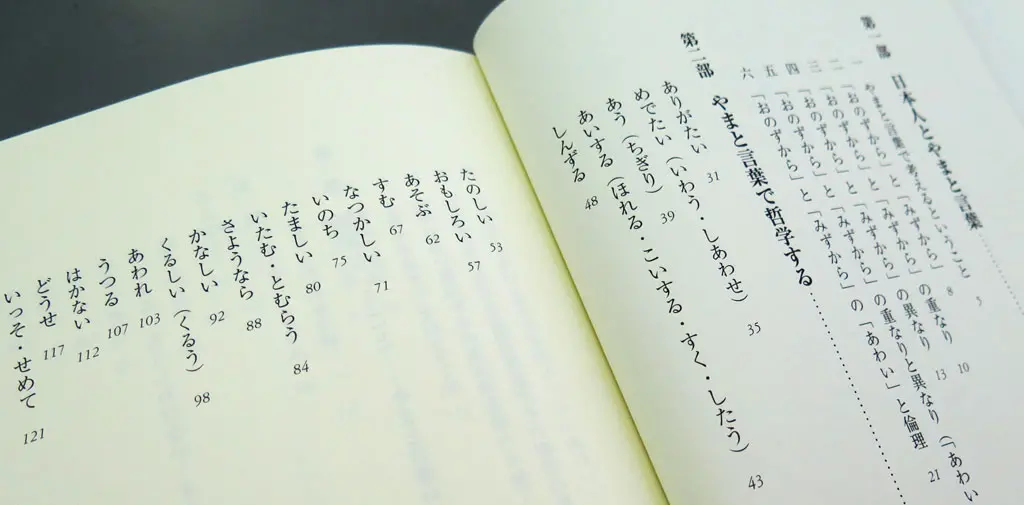 第一部　日本人とやまと言葉……
一　やまと言葉で考えるということ　5
二　「おのずから」と「みずから」　8
三　「おのずから」と「みずから」の重なり　10
四　「おのずから」と「みずから」の異なり　13
五　「おのずから」と「みずから」の重なりと異なり（「あわい
六　「おのずから」と「みずから」の「あわい」と倫理　21
第二部　やまと言葉で哲学する……
ありがたい　31
めでたい（いわう・しあわせ）　35
あう（ちぎり）　39
あいする（ほれる・こいする・すく・したう）　43
しんずる　48
たのしい　53
おもしろい　57
あそぶ　62
すむ　67
なつかしい　71
いのち　75
たましい　80
いたむ・とむらう　84
さようなら　88
かなしい　92
くるしい（くるう）　98
あわれ　103
うつる　107
はかない　112
どうせ　117
いっそ・せめて　121